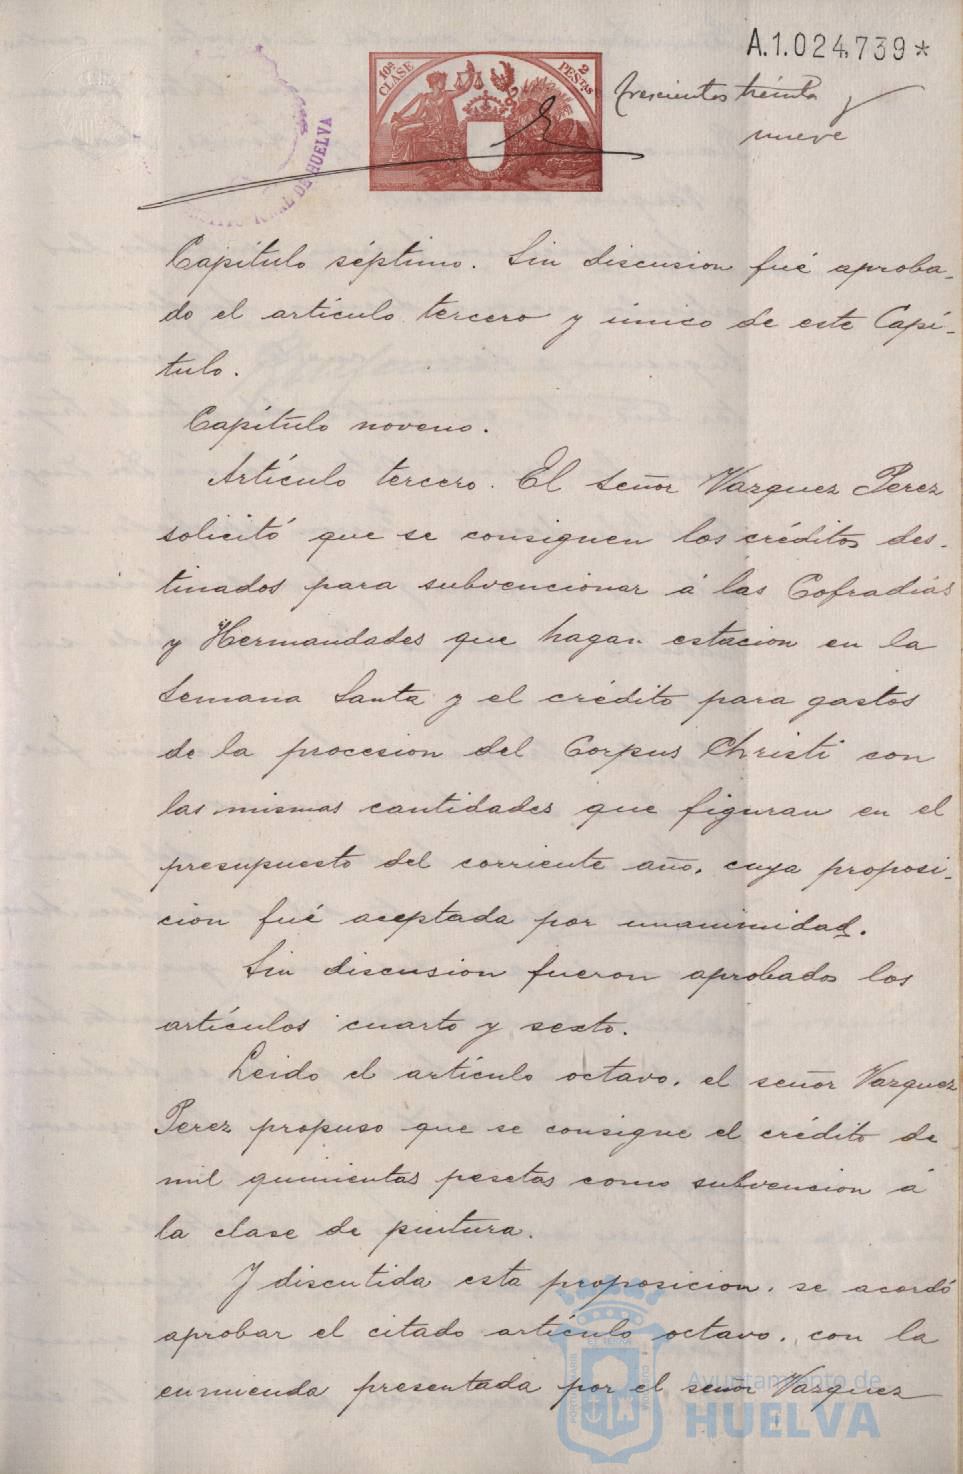 A.1.024,739*
10ª CLASE
2 PESTAS
trescientos treinta y
nueve
REAL DE HUELVA
Capítulo séptimo. Sin discusion fué aproba-
do el artículo tercero y único de este Capí-
tulo.
Capítulo noveno.
Artículo tercero. El señor Vazquez Perez
solicitó que se consiguen los créditos des-
tinados para subvencionar á las Cofradías
y Hermandades que hagan estacion en la
Semana Santa y el crédito para gastos
de la procesion del Corpus Christi con
las mismas cantidades que figuran en el
presupuesto del corriente año, cuya proposi-
cion fué aceptada por unanimidad.
Sin discusion fueron aprobados los
artículos cuarto y sexto.
Leido el artículo octavo, el señor Vazquez
Perez propuso que se consigne el crédito de
mil quinientas pesetas como subvencion á
la clase de pintura.
Y discutida esta proposicion, se acordó
aprobar el citado artículo octavo, con la
enmienda presentada por el señor Vazquez
Ayuntamiento de
HUELVA